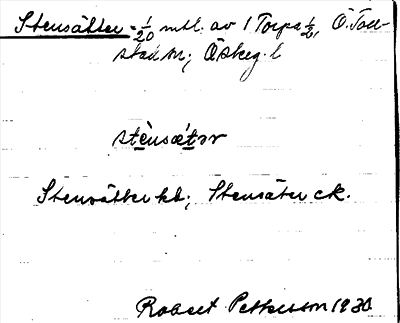 Stensätter = 1/20 mtl. av 1 Torpa 1/2, Ö. Toll-
stad sn; Ö̈skeg. l
stènsǽtər
Stensätter kb; Stensäter ck.
Robert Pettersson 1930